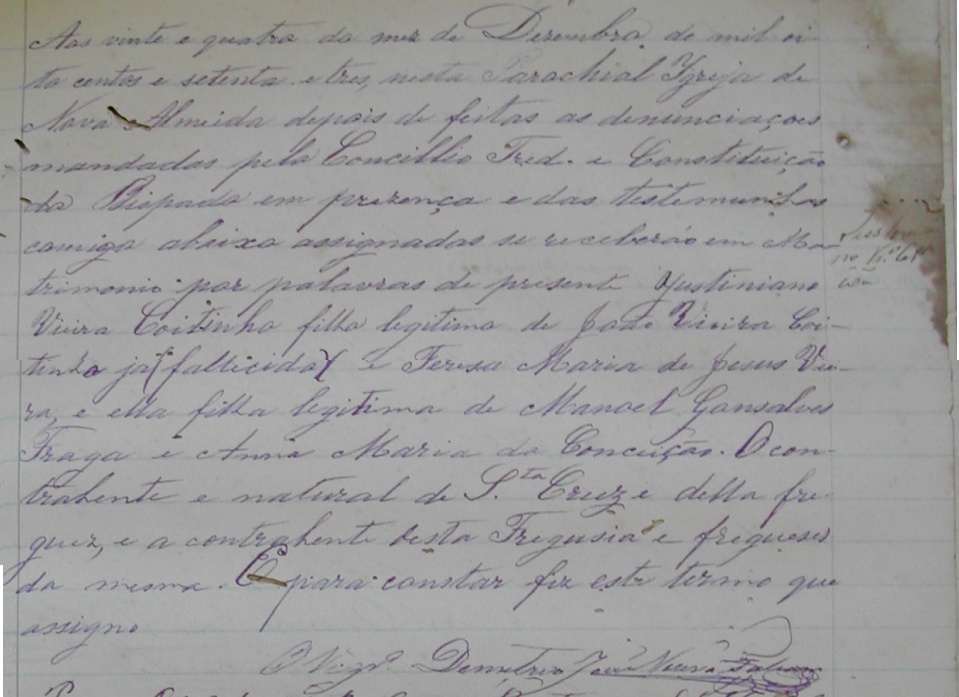 Aos vinte e quatro do mez de Dezembro de mil oi
to centos e setenta e tres, nesta Parochial Ygreja de
Nova Almeida depois de feitas as denunciaçoes
mandadas pelo Concillio Tred. e Constituição
do Bispado em prezença e das testemunhas
comigo abaixo assignadas se receberão em Ma-
trimonio por palavras de presente Yustiniano
Vieira Coitinho filho legitimo de João Vieira Coi-
tinho já (fallicido) e Teresa Maria de Jesus Vie-
ra, e ella filha legitima de Manoel Gonsalves
Fraga e Anna Maria da Conceição. O con-
trahente e natural de S.ta Cruz e della fre-
guez, e a contrahente desta Fregusia e fregueses
da mesma. E para constar fiz este termo que
assigno
O Vigr.º Demetrio